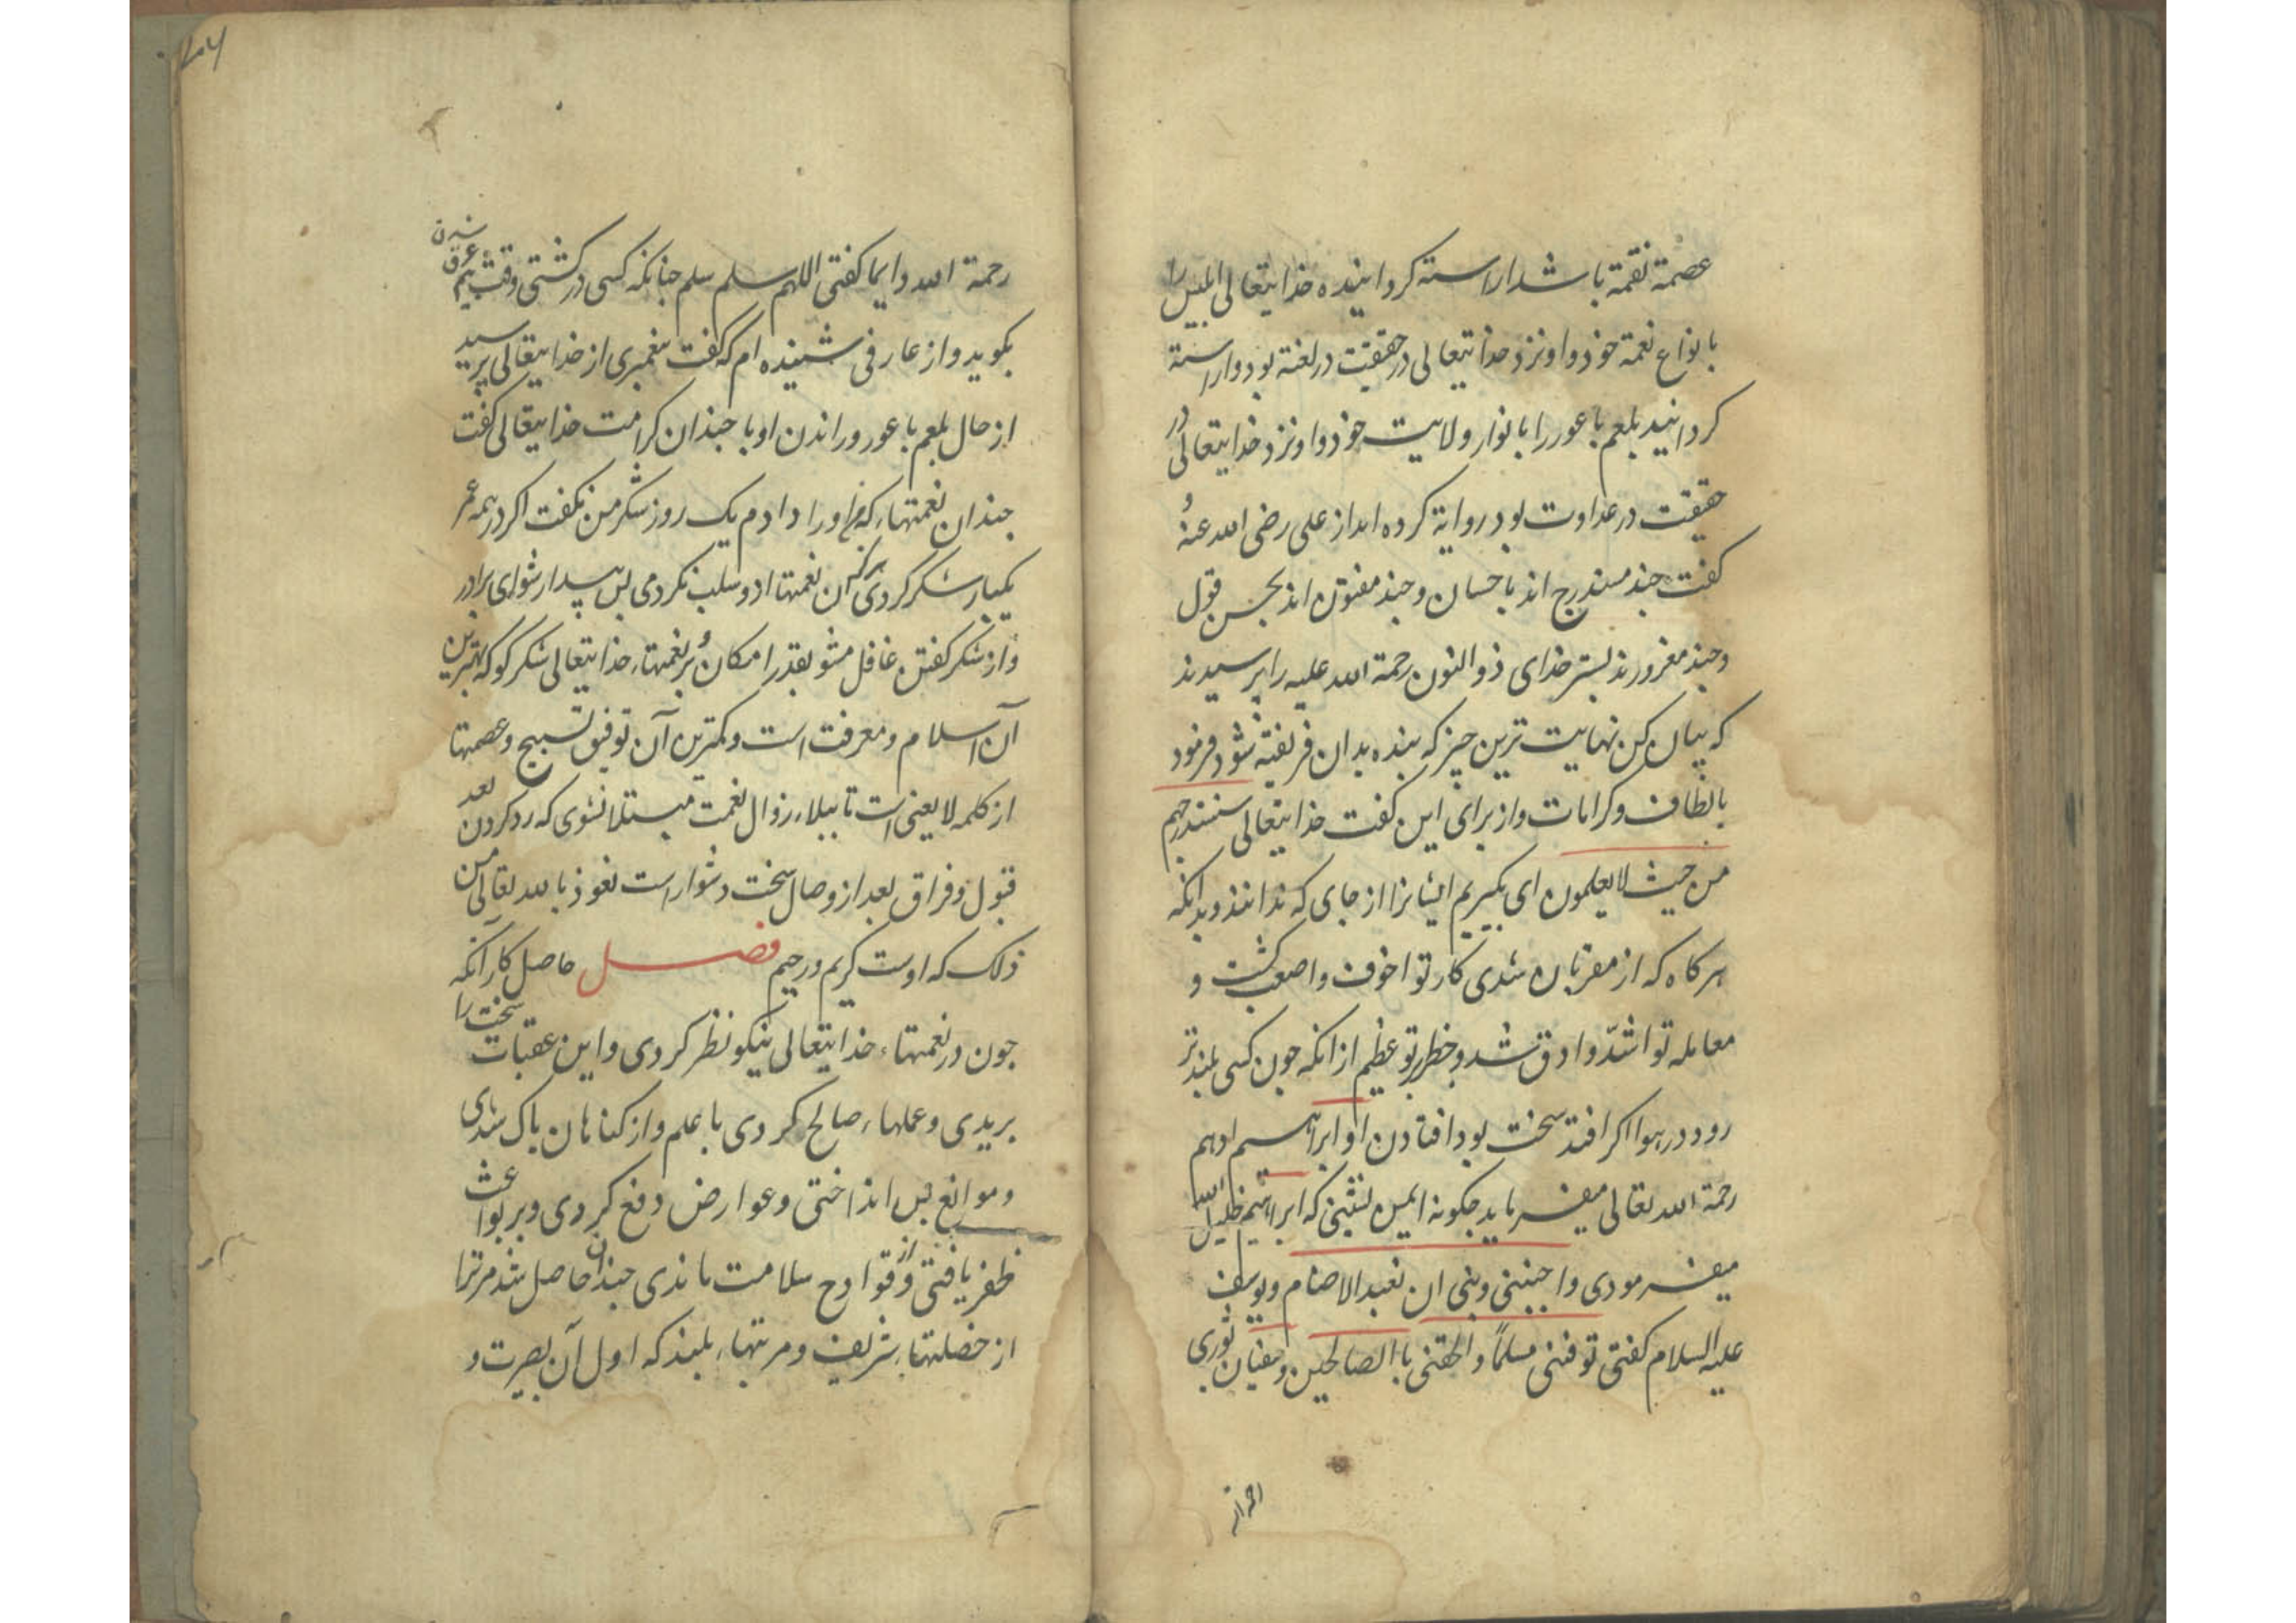 عصمة نقمة باشد اراسته کردانیده خدایتعالی ابلیس را
بانواع نعمة خود و او نزد خدایتعالی در حقیقت در لعنة بود و اراسته
کردانید بلعم باعور را بانوار ولایت خود و او نزد خدایتعالی در
حقیقت در عداوت بود روایة کرده اند از علی رضی الله عنهُ
کفت چند مستدرج اند باحسان و چند مفتون اند بحسن قول
و چند مغرورند بستر خدای ذوالنون رحمة الله علیه را پرسیدند
که بیان کن نهایت ترین چیز که بنده بدان فریفته شود فرمود
بالطاف و کرامات و از برای این کفت خدایتعالی سنستدرجهم
من حیث لا یعلمون ای بکیریم ایشانرا از جای که ندانند و بدانکه
هر کاه که از مقربان شدی کار تو اخوف و اصعب کشت و
معامله تو اشدّ و ادق شد و خطر تو عظیم از انکه چون کسی بلندتر
رود در هوا اکر افتد سخت بود افتادن او ابراهیم ادهم
رحمة الله تعالی میفرماید چکونه ایمن نشینی که ابراهیم خلیل الله
میفرمودی واجنبنی وبنی ان نعبد الاصنام و یوسف
علیه السلام کفتی توفنی مسلمًا والحقنی باالصالحین و سفیان ثوری
رحمة الله دایما کفتی اللهم سلم سلم چنانکه کسی در کشتی وقت بیم غرق شدن
بکوید و از عارفی شنیده ام که کفت پیغمبری از خدایتعالی پرسید
از حال بلعم باعور و راندن او با چندان کرامت خدایتعالی کفت
چندان نعمتهاء که اورا دادم یک روز شکر من نکفت اکر در همه عمر
یکبار شکر کردی هرکز ان نعمتها ازو سلب نکردمی پس بیدار شو ای برادر
و از شکر کفتن غافل مشو بقدر امکان و بر نعمتهاء خدایتعالی شکر کو که بهترین
آن اسلام و معرفت است و کمترین آن توفیق تسبیح و عصمتها
از کلمه لا یعنی است تا ببلاء زوال نعمت مبتلا نشوی که رد کردن بعد
قبول و فراق بعد از وصال سخت دشوار است نعوذ بالله تعالی من
ذلک که اوست کریم و رحیم فصل حاصل کار آنکه
چون در نعمتهاء خدایتعالی نیکو نظر کردی و این عقبات سخت را
بریدی و عملهاء صالح کردی با علم و از کناهان پاک شدی
و موانع پس انداختی و عوارض دفع کردی و بر بواعث
ظفر یافتی و از قوادح سلامت ماندی چندان حاصل شد مر ترا
از خصلتهاء شریف و مرتبهاء بلند که اول آن بصیرت و